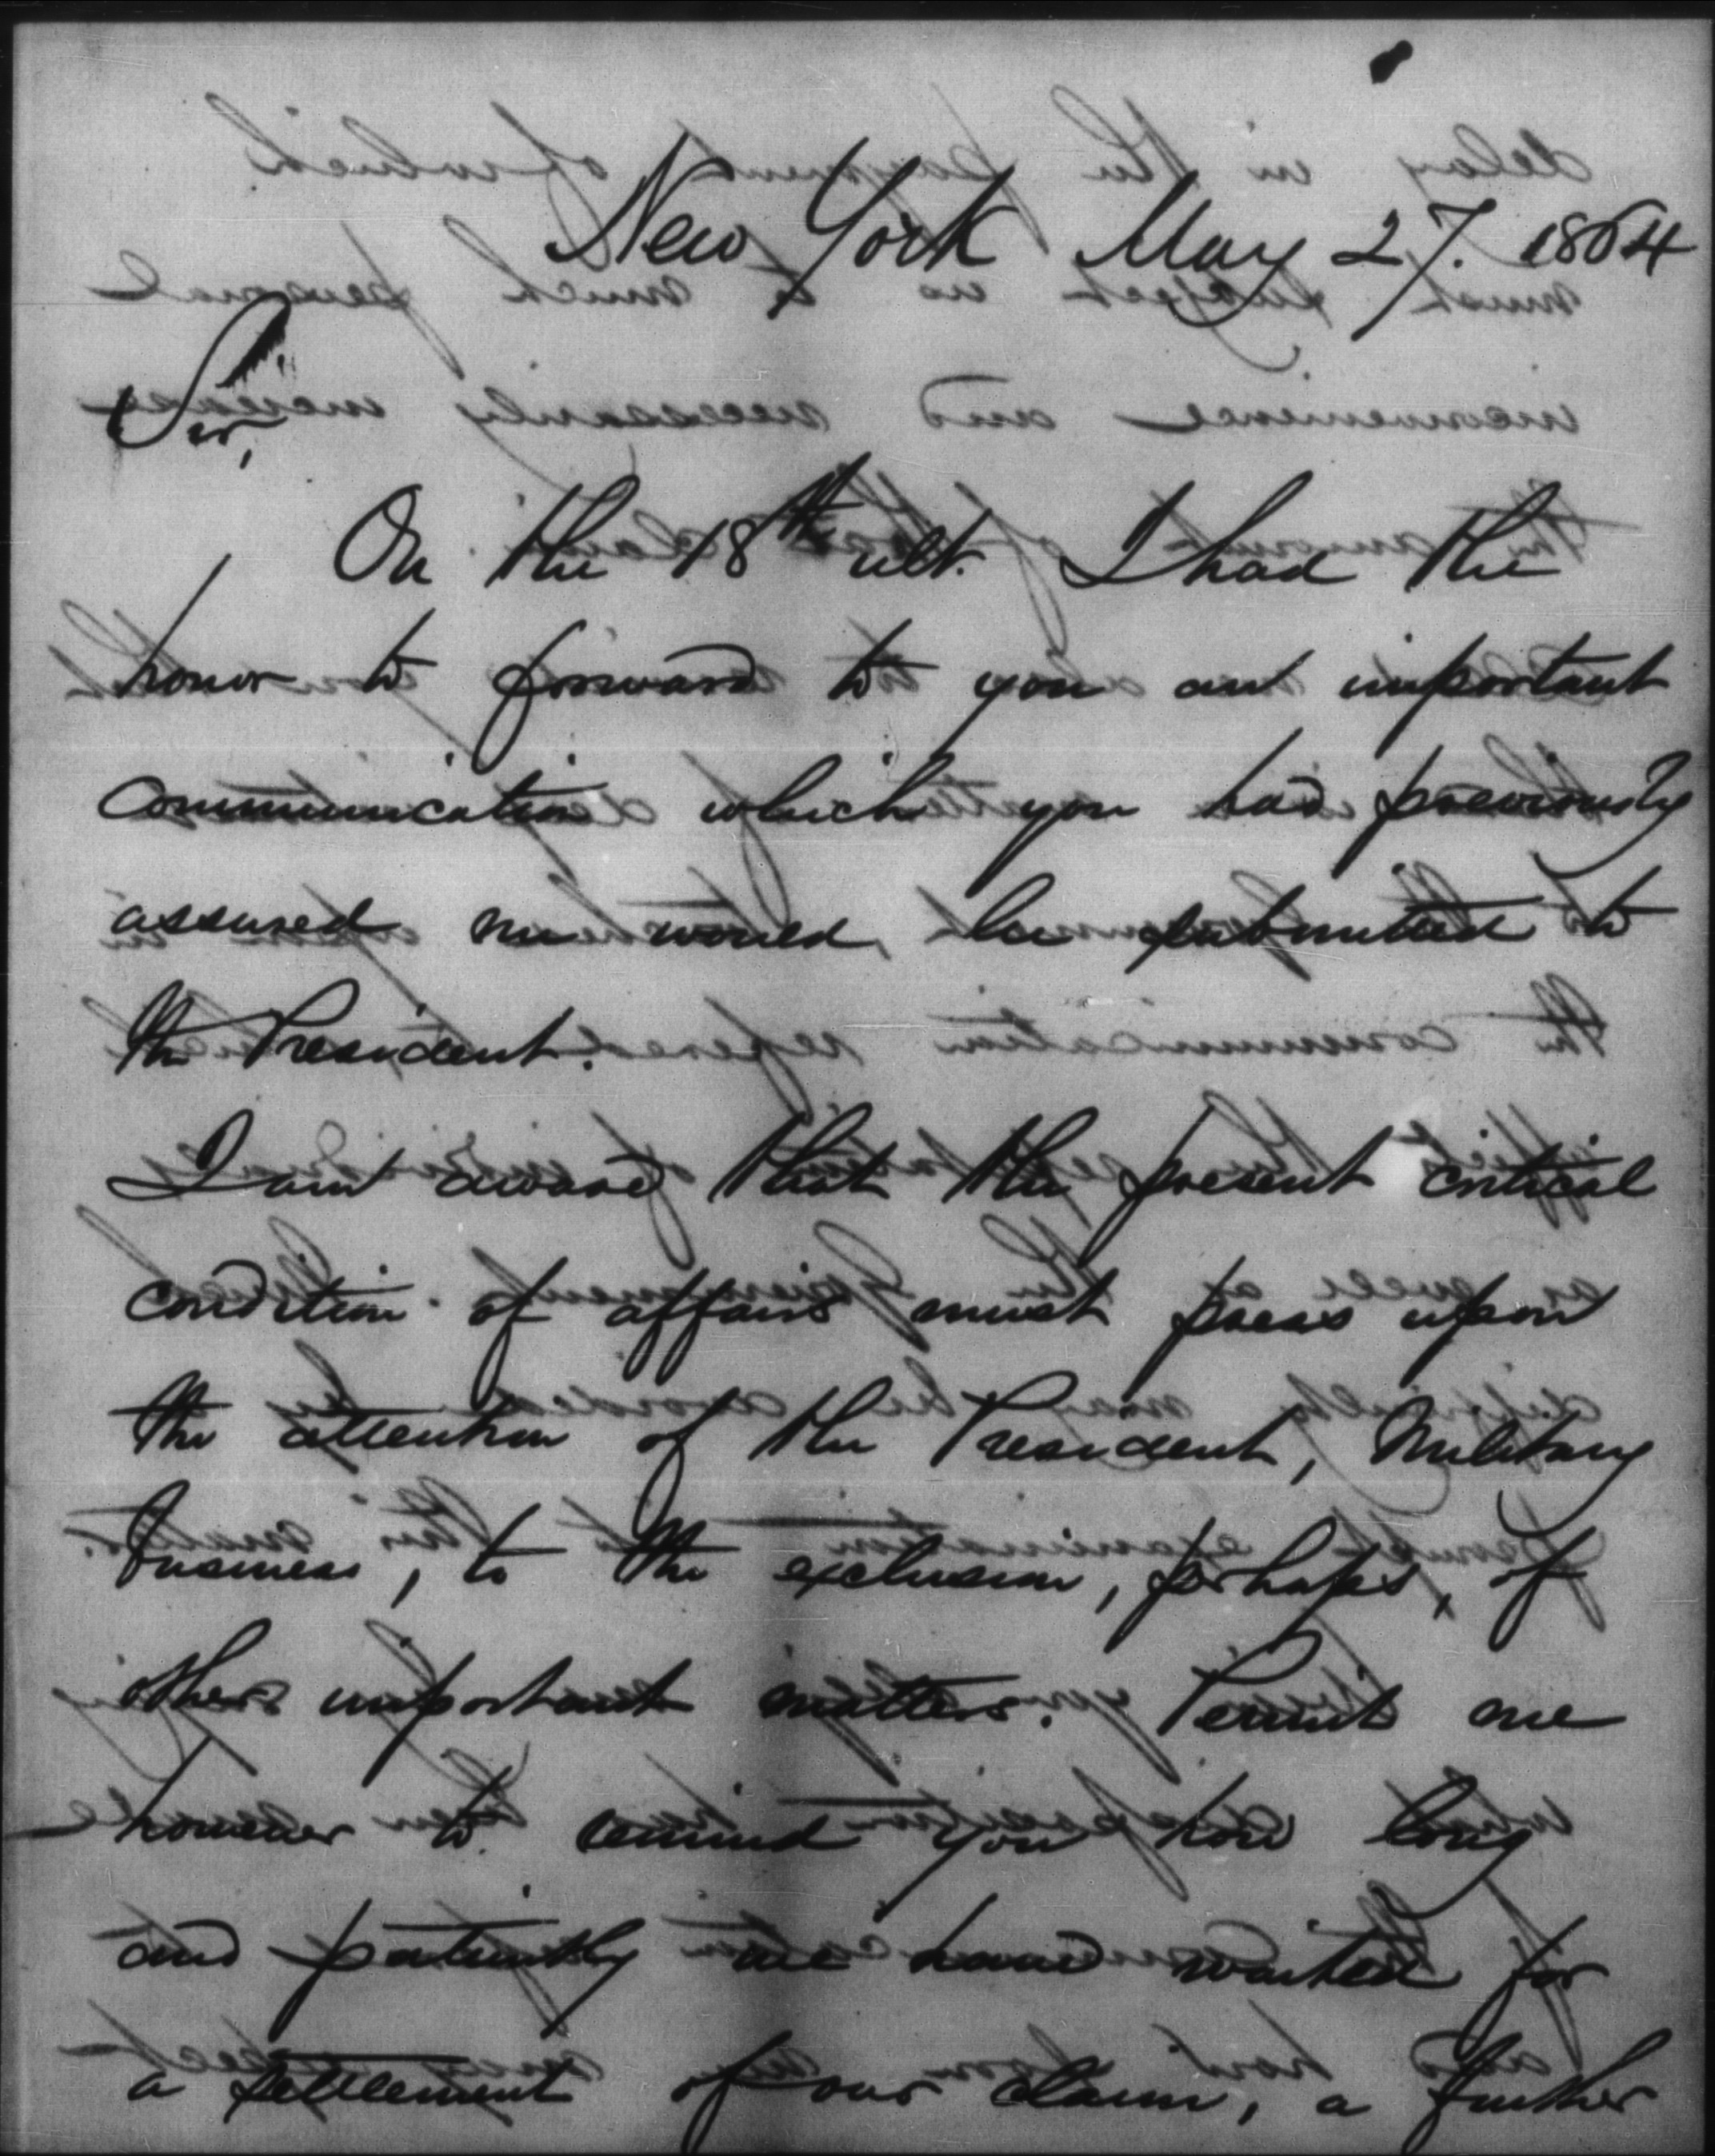 New York May 27. 1864
Sir,
On the 18th ult. I had the
honor to forward to you an important
communication which you had previously
assured me would be submitted to
the President.
I am aware that the present critical
condition of affairs must press upon
the attention of the President, Military
business, to the exclusion, perhaps, of
other important matters. Permit me
however to remind you how long
and patiently we have waited for
a settlement of our claim, a further